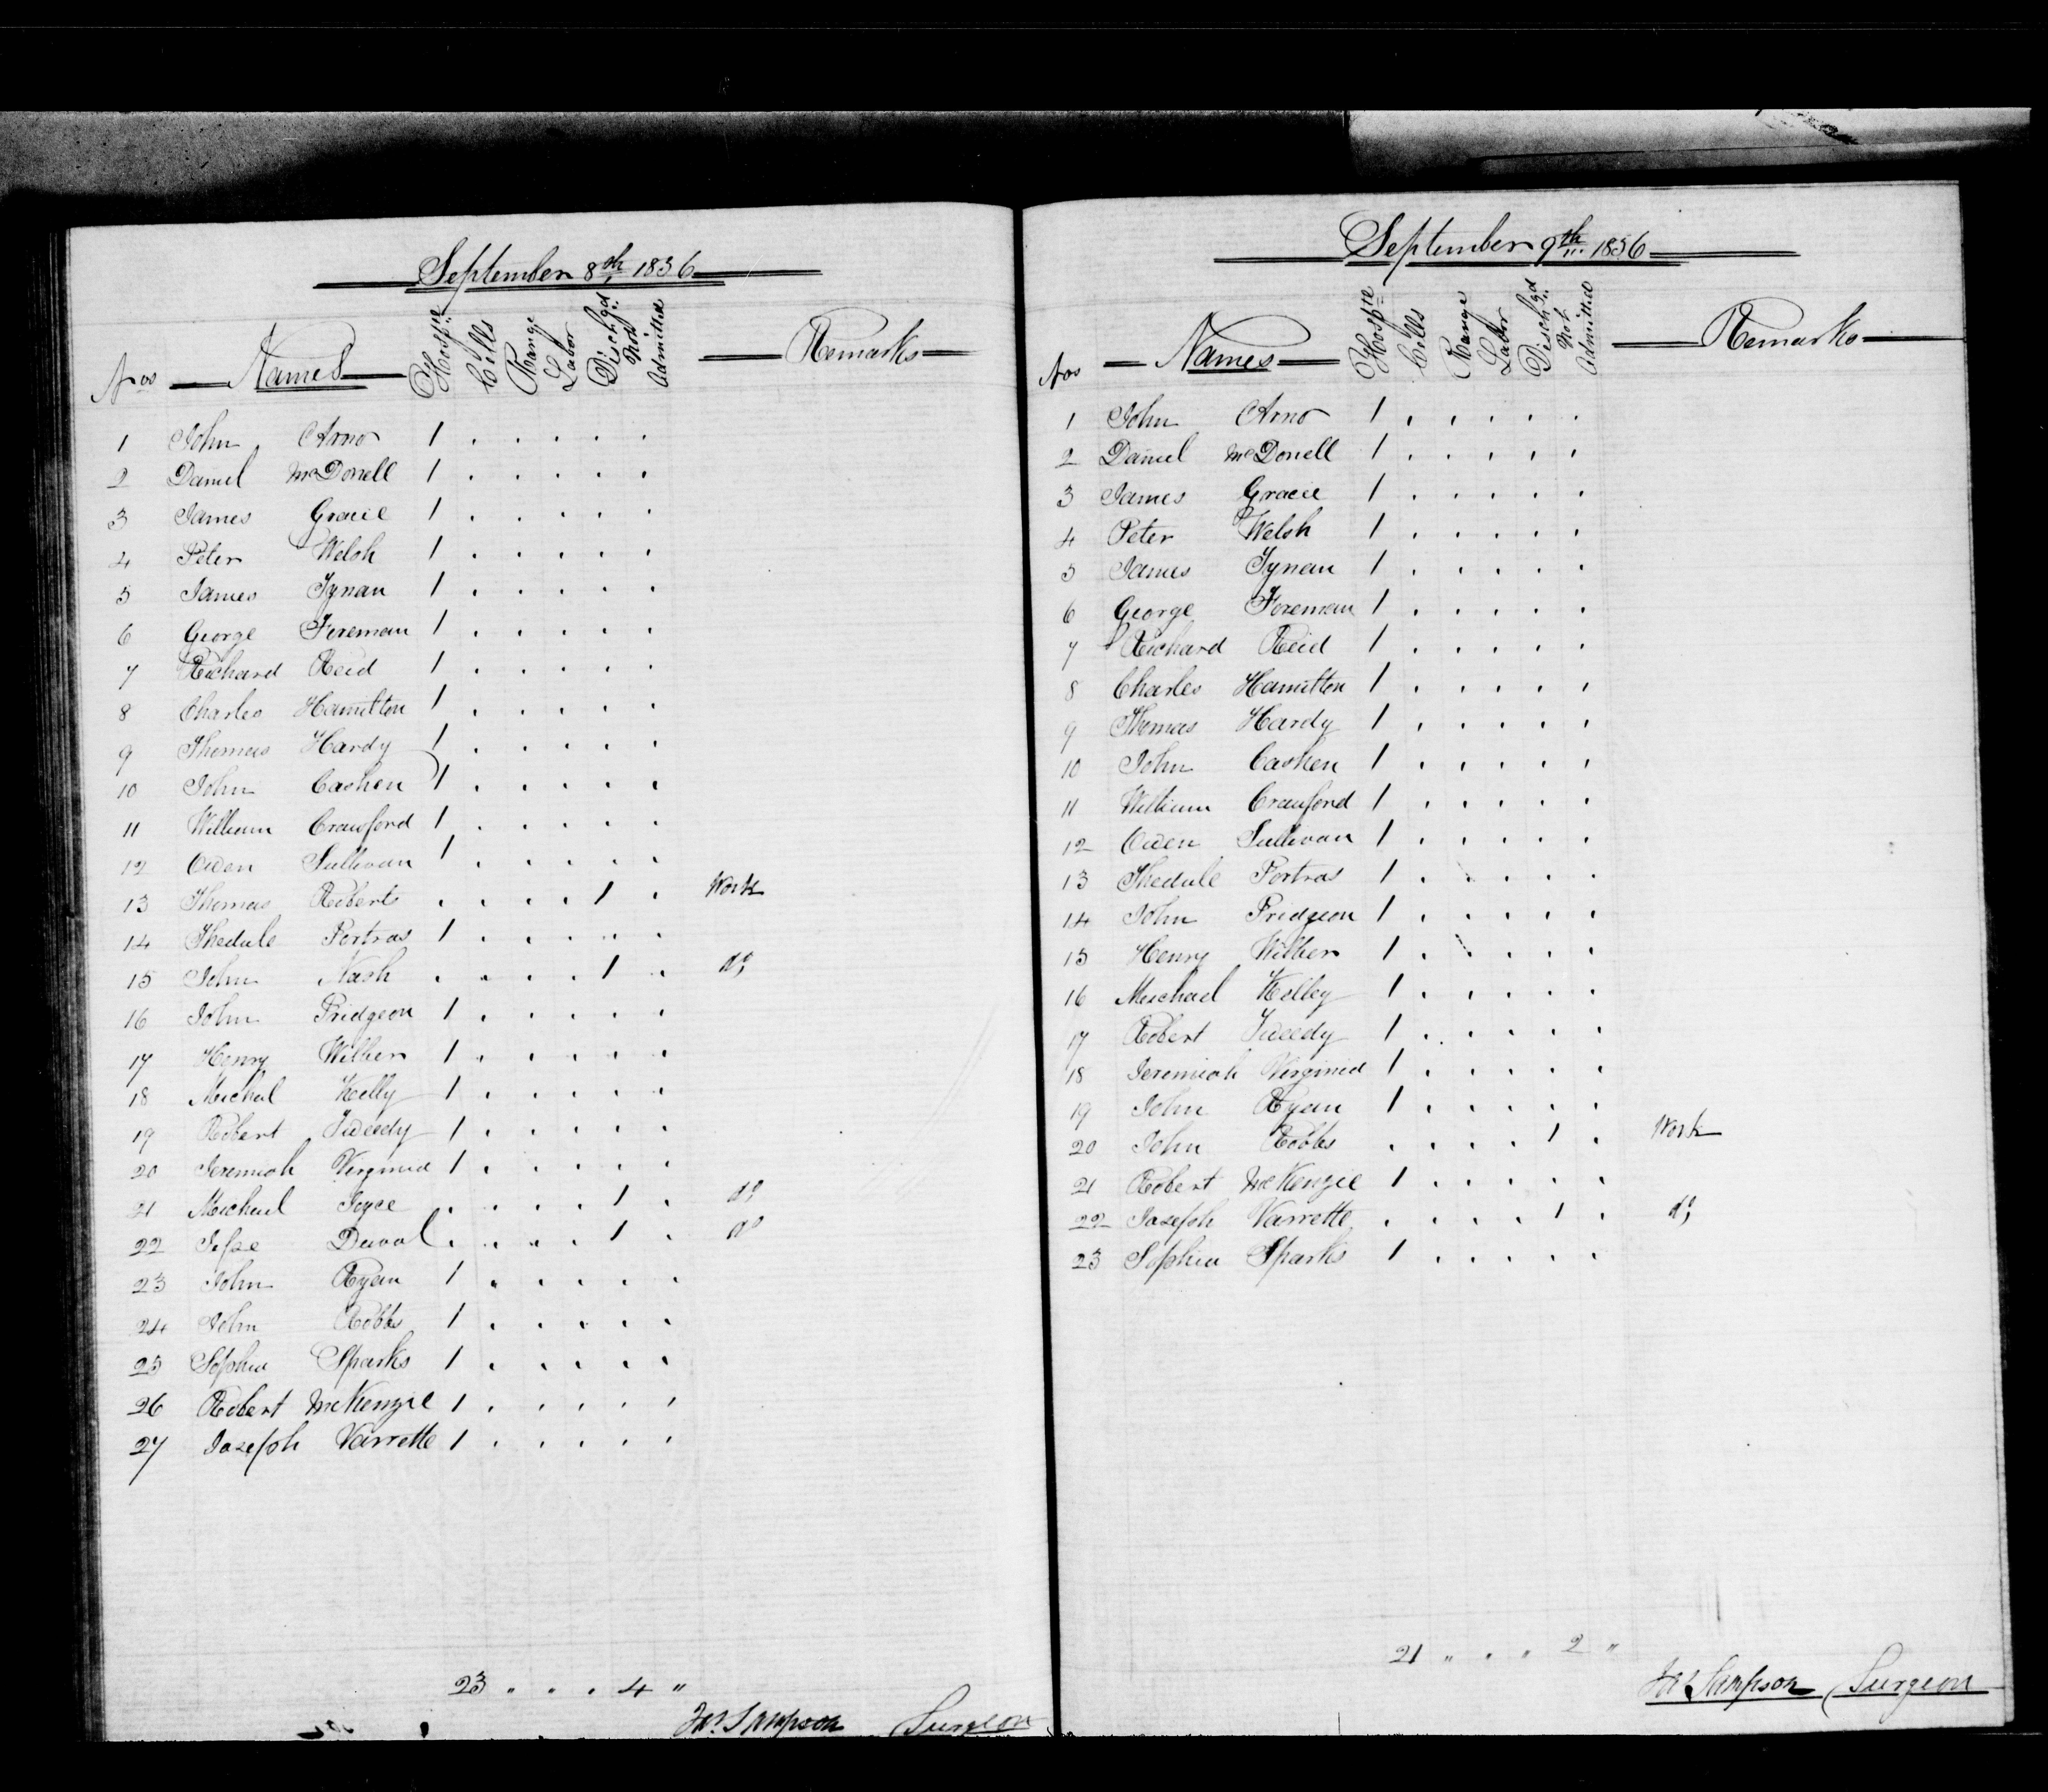 September 8th 1856
Nos Names Hosptl Cells Range Labor Dischgd Not Admitted Remarks
1 John Arno 1 . . . . .
2 Daniel McDonell 1 . . . . .
3 James Gracie 1 . . . . .
4 Peter Welsh 1 . . . . .
5 James Tynan 1 . . . . .
6 George Foreman 1 . . . . .
7 Richard Reid 1 . . . . .
8 Charles Hamilton 1 . . . . .
9 Thomas Hardy 1 . . . . .
10 John Cashen 1 . . . . .
11 William Crawford 1 . . . . .
12 Owen Sullivan 1 . . . . .
13 Thomas Roberts . . . . 1 . Work
14 Thedule Portras 1 . . . . .
15 John Nash . . . . 1 . do
16 John Pridgeon 1 . . . . .
17 Henry Wilber 1 . . . . .
18 Michal Kelly 1 . . . . .
19 Robert Tweedy 1 . . . . .
20 Jeremiah Virginid 1 . . . . .
21 Michael Joyce . . . . 1 . do
22 Jesse Duval . . . . 1 . do
23 John Ryan 1 . . . . .
24 John Robbs 1 . . . . .
25 Sophia Sparks 1 . . . . .
26 Robert McKenzie 1 . . . . .
27 Joseph Varrette 1 . . . . .
23 " " " 4 "
Jas Sampson Surgeon
September 9th 1856
Nos Names Hosptl Cells Range Labor Dischgd Not Admitted Remarks
1 John Arno 1 . . . . .
2 Daniel McDonell 1 . . . . .
3 James Gracie 1 . . . . .
4 Peter Welsh 1 . . . . .
5 James Tynan 1 . . . . .
6 George Foreman 1 . . . . .
7 Richard Reid 1 . . . . .
8 Charles Hamilton 1 . . . . .
9 Thomas Hardy 1 . . . . .
10 John Cashen 1 . . . . .
11 William Crawford 1 . . . . .
12 Owen Sullivan 1 . . . . .
13 Thedule Portras 1 . . . . .
14 John Pridgeon 1 . . . . .
15 Henry Wilber 1 . . . . .
16 Michael Kelley 1 . . . . .
17 Robert Tweedy 1 . . . . .
18 Jeremiah Virginid 1 . . . . .
19 John Ryan 1 . . . . .
20 John Robbs . . . . 1 . Work
21 Robert McKenzie 1 . . . . .
22 Joseph Varrette . . . . 1 . do
23 Sophia Sparks 1 . . . . .
21 " " " 2 "
Jas Sampson Surgeon